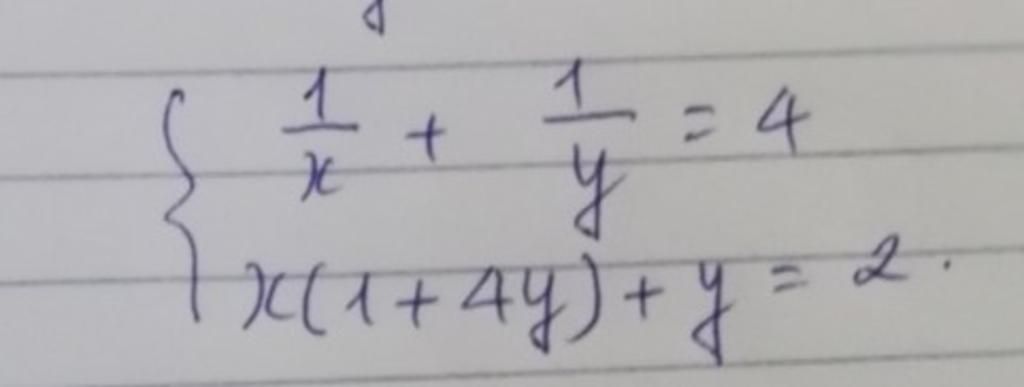 1/x + 1/y = 4
x(1+4y)+y = 2.